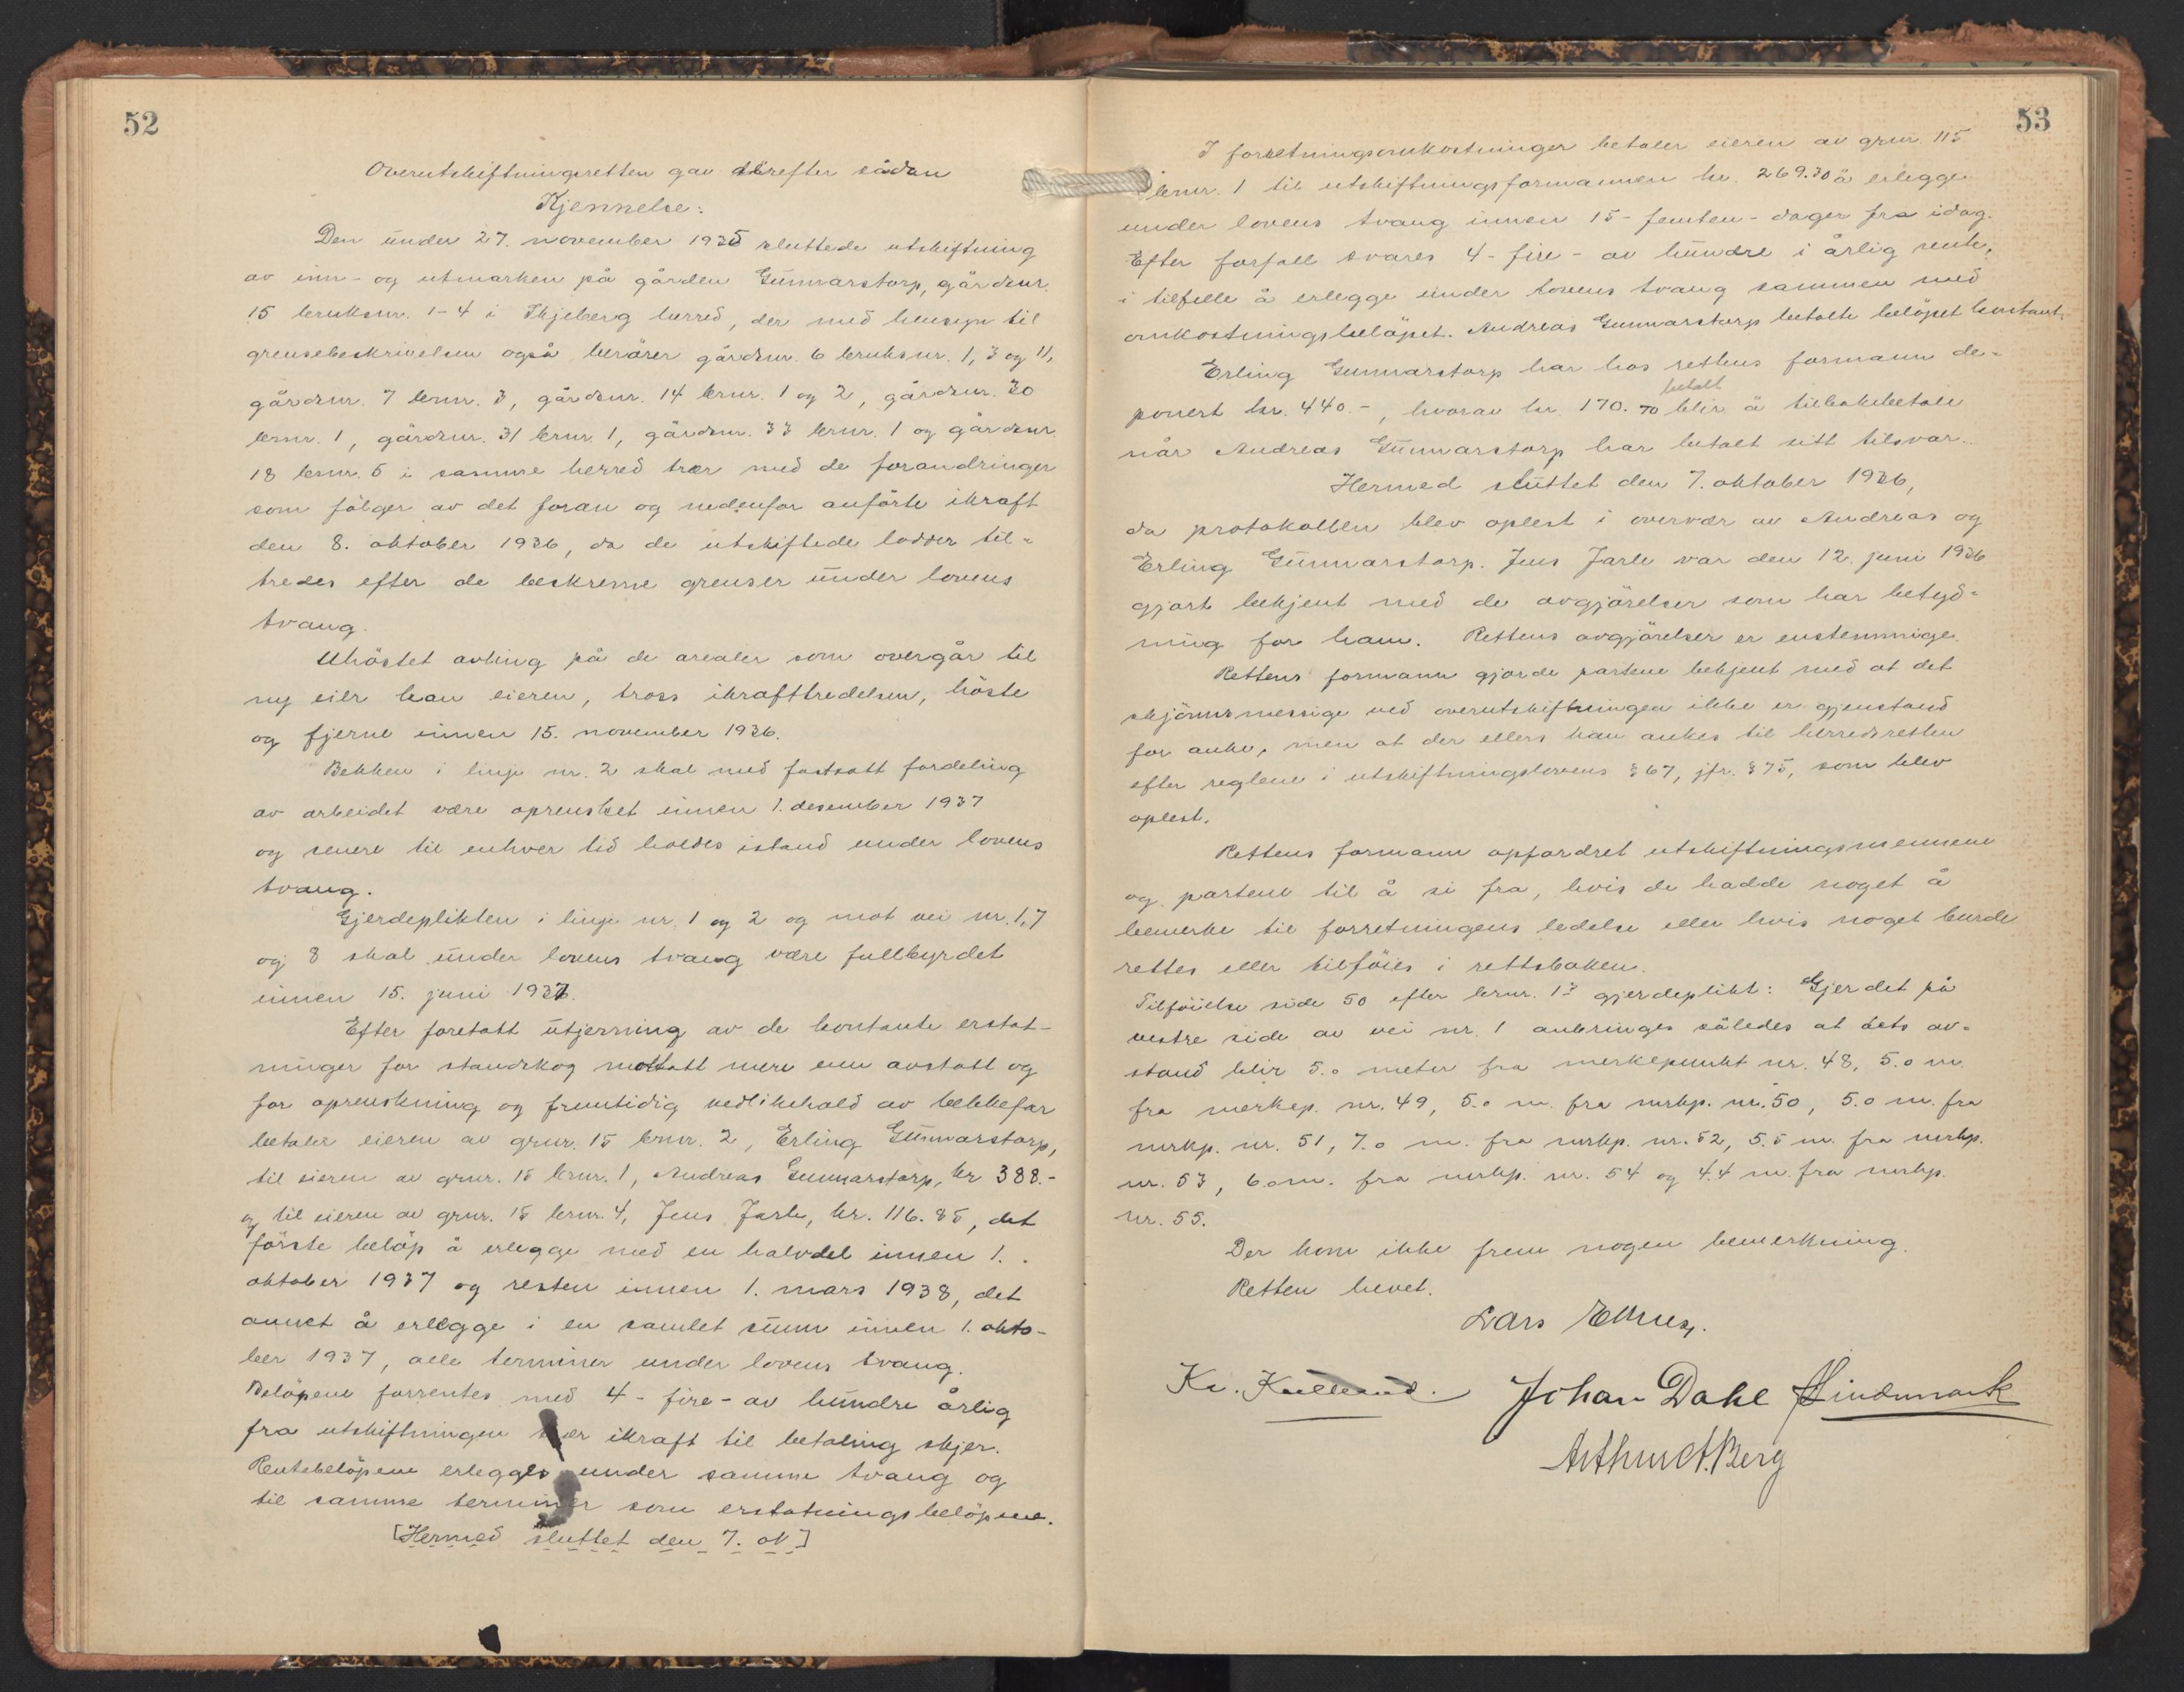 52
Overutskiftningsretten gav derefter sådan
Kjennelse:
Den under 27. november 1935 sluttede utskiftning
av inn- og utmarken på gården Gunnarstorp, gårdsnr.
15 bruksnr. 1-4 i Skjeberg herred, der med hensyn til
grensebeskrivelsen også berører gårdsnr. 6 bruksnr. 1, 3 og 11,
gårdsnr. 7 brnr. 3, gårdsnr. 14 brnr. 1 og 2, gårdsnr. 30
brnr. 1, gårdsnr. 31 brnr. 1, gårdsnr. 33 brnr. 1 og gårdsnr.
18 brnr. 5 i samme herred trær med de forandringer
som følger av det foran og nedenfor anførte ikraft
den 8. oktober 1936, da de utskiftede lodder til-
tredes efter de beskrevne grenser under lovens
tvang.
Uhøstet avling på de arealer som overgår til
ny eier kan eieren, tross ikrafttredelsen, høste
og fjerne innen 15. november 1936.
Bekken i linje nr. 2 skal med fastsatt fordeling
av arbeidet være oprensket innen 1. desember 1937
og senere til enhver tid holdes istand under lovens
tvang.
Gjerdeplikten i linje nr. 1 og 2 og mot vei nr. 1, 7
og 8 skal under lovens tvang være fullbyrdet
innen 15. juni 1937.
Efter foretatt utjevning av de kontante erstat-
ninger for standskog mottatt mere enn avstatt og
for oprenskning og fremtidig vedlikehold av bekkefar
betaler eieren av grnr. 15 brnr. 2, Erling Gunnarstorp,
til eieren av grnr. 15 brnr. 1, Andreas Gunnarstorp, kr 388.-
og til eieren av grnr. 15 brnr. 4, Jens Jarle, kr. 116.85, det
første beløp å erlegge med en halvdel innen 1.
oktober 1937 og resten innen 1. mars 1938, det
annet å erlegge i en samlet sum innen 1. okto-
ber 1937, alle terminer under lovens tvang.
Beløpene forrentes med 4 - fire - av hundre årlig
fra utskiftningen trær ikraft til betaling skjer.
Rentebeløpene erlegges under samme tvang og
til samme terminer som erstatningsbeløpene.
[Hermed sluttet den 7. ok]
53
I forretningsomkostninger betaler eieren av grnr. 115
brnr. 1 til utskiftningsformannen kr. 269.30 å erlegge
under lovens tvang innen 15 - femten - dager fra idag.
Efter forfall svares 4 - fire - av hundre i årlig rente,
i tilfelle å erlegge under lovens tvang sammen med
omkostningsbeløpet. Andreas Gunnarstorp betalte beløpet kontant.
Erling Gunnarstorp har hos rettens formann de-
betalt
ponert kr. 440.-, hvorav kr 170.70 blir å tilbakebetale
når Andreas Gunnarstorp har betalt sitt tilsvar.
Hermed sluttet den 7. oktober 1936,
da protokollen blev oplest i overvær av Andreas og
Erling Gunnarstorp. Jens Jarle var den 12. juni 1936
gjort bekjent med de avgjørelser som har betyd-
ning for ham. Rettens avgjørelser er enstemmige.
Rettens formann gjorde partene bekjent med at det
skjønnsmessige ved overutskiftningen ikke er gjenstand
for anke, men at der ellers kan ankes til herredsretten
efter reglene i utskiftningslovens § 67, jfr. § 75, som blev
oplest.
Rettens formann opfordret utskiftningsmennene
og partene til å si fra, hvis de hadde noget å
bemerke til forretningens ledelse eller hvis noget burde
rettes eller tilføies i rettsboken.
Tilføielse side 50 efter brnr. 1's gjerdeplikt: Gjerdet på
vestre side av vei nr. 1 anbringes således at dets av-
stand blir 5.0 meter fra merkepunkt nr. 48, 5.0 m.
fra merkep. nr. 49, 5.0 m. fra mrkp. nr. 50, 5.0 m. fra
mrkp. nr. 51, 7.0 m. fra mrkp. nr. 52, 5.5 m. fra mrkp.
nr. 53, 6.0 m. fra mrkp. nr. 54 og 4.4 m. fra mrkp.
nr. 55.
Der kom ikke frem nogen bemerkning.
Retten hevet.
Lars
Johan Dahl Lindemark
Arthur A. Berg